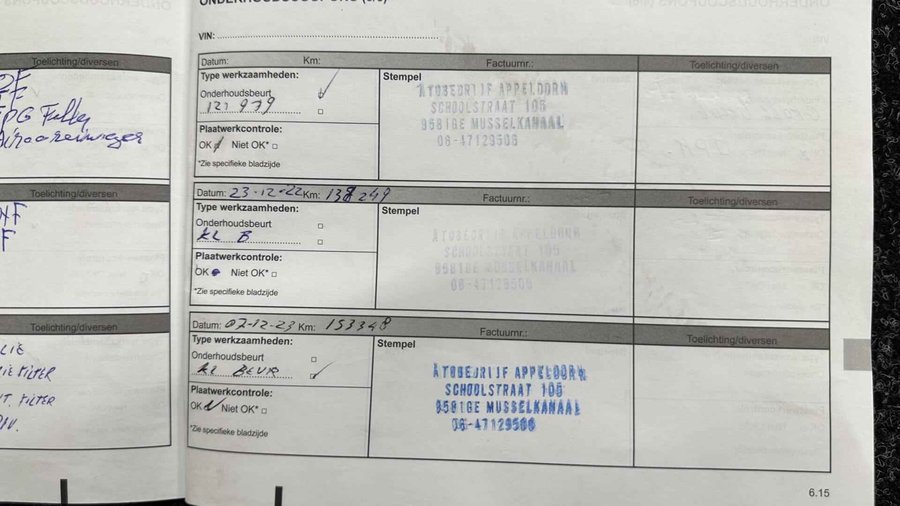 Toelichting/diversen
LPG Filter
Toelichting/diversen
F
Toelichting/diversen
ONDERHOUDSCOUPONS (6/6)
VIN:
Datum: Km: Factuurnr.: Toelichting/diversen
Type werkzaamheden:
Onderhoudsbeurt
121 979
Plaatwerkcontrole:
OK Niet OK*
*Zie specifieke bladzijde
Stempel
AUTOBEDRIJF APPELDORN
SCHOOLSTRAAT 105
9581GE MUSSELKANAAL
06-47129506
Datum: 23-12-22 Km: 138 249 Factuurnr.: Toelichting/diversen
Type werkzaamheden:
Onderhoudsbeurt
KL B
Plaatwerkcontrole:
OK Niet OK*
*Zie specifieke bladzijde
Stempel
AUTOBEDRIJF APPELDORN
SCHOOLSTRAAT 105
9581GE MUSSELKANAAL
06-47129506
Datum: 07-12-23 Km: 153348 Factuurnr.: Toelichting/diversen
Type werkzaamheden:
Onderhoudsbeurt
KL BEUR
Plaatwerkcontrole:
OK Niet OK*
*Zie specifieke bladzijde
Stempel
AUTOBEDRIJF APPELDORN
SCHOOLSTRAAT 105
9581GE MUSSELKANAAL
06-47129506
6.15